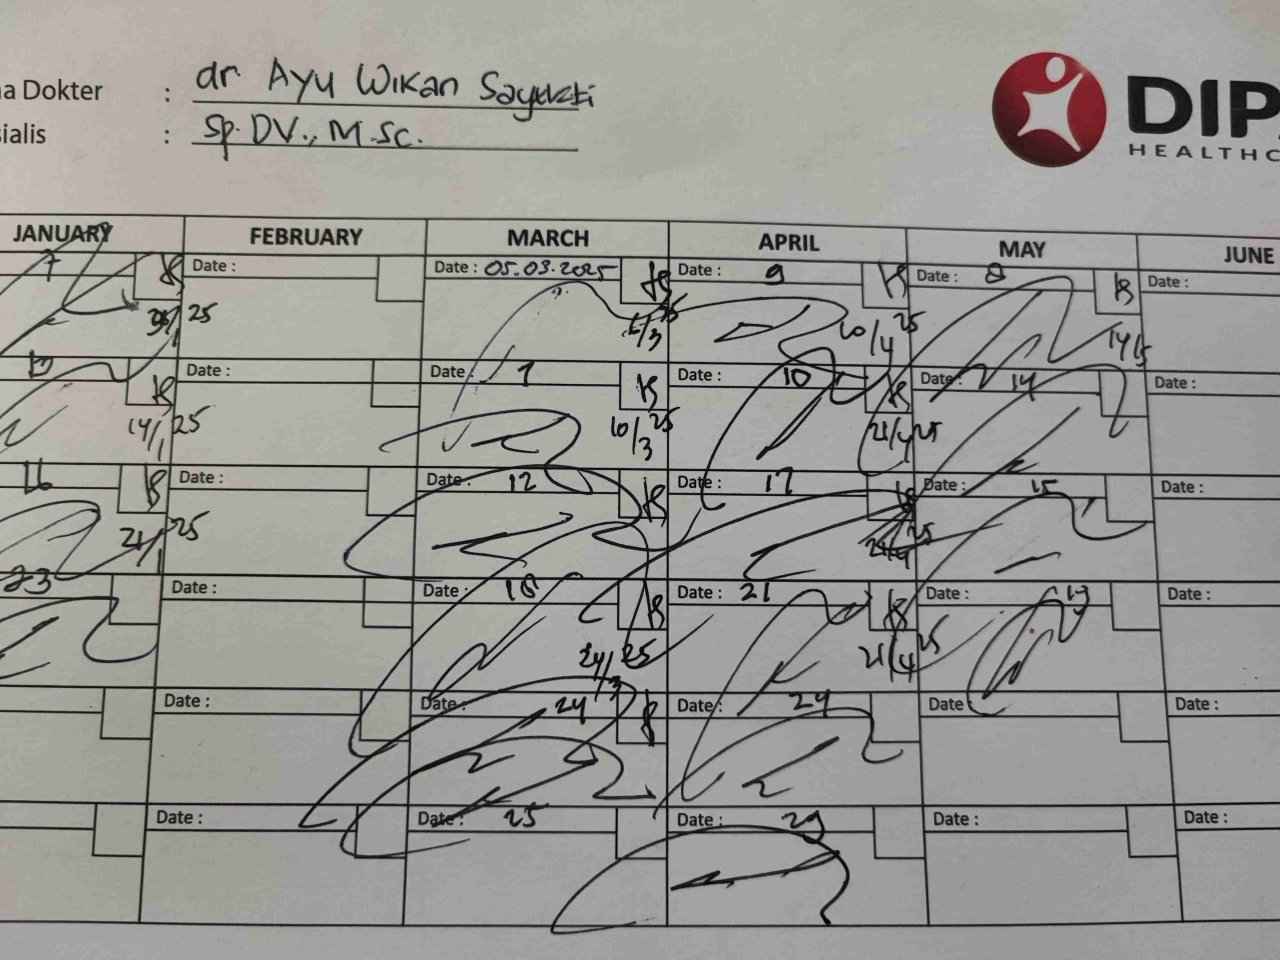 a Dokter : dr. Ayu Wikan Sayekti
ialis : Sp. DV., M.Sc.
DIP
HEALTHC
JANUARY FEBRUARY MARCH APRIL MAY JUNE
7 Date : Date : 05.03.2025 Date : 9 Date : 8 Date :
25 10/4 25 14/5
Date : Date : 7 Date : 10 Date : 14 Date :
14/1 25 10/3 25 21/4 25
16 Date : Date : 12 Date : 17 Date : 15 Date :
21/1 25 25
23 Date : Date : 18 Date : 21 Date : 19 Date :
24/3 25 21/4 25
Date : Date : 24 Date : 24 Date : Date :
Date : Date : 25 Date : 29 Date : Date :